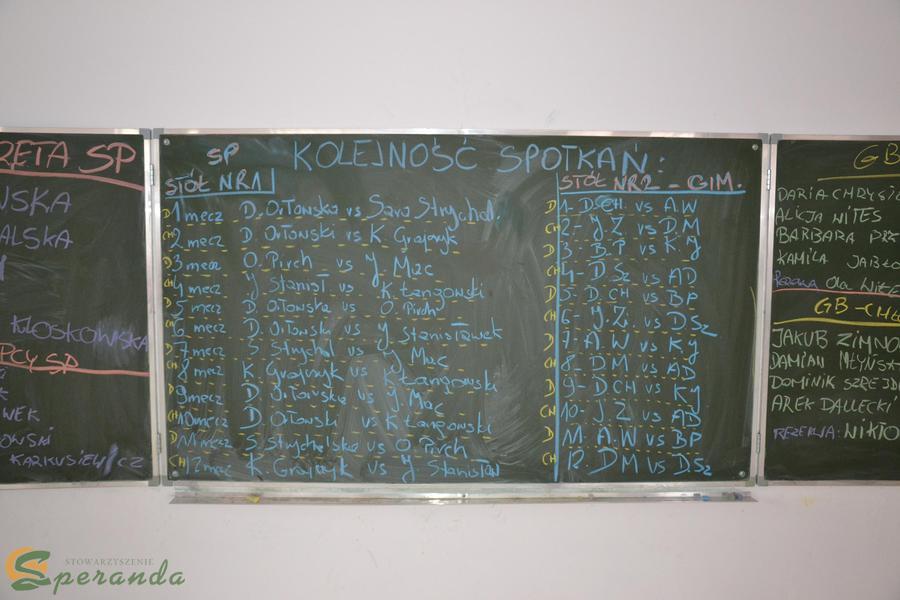 RETA SP
WSKA
ALSKA
KŁOSKOWSKA
PCY SP
WEK
OWSKI
KARKUSIEWICZ
SP KOLEJNOŚĆ SPOTKAŃ:
STÓŁ NR1
D 1 mecz D. Orłowska vs Sara Strychal.
CH 2 mecz D. Orłowski vs K Grajczyk
D 3 mecz O. Pirch vs J. Mac
CH 4 mecz J. Stanisł vs K Łangowski
D 5 mecz D. Orłowska vs O. Pirch
CH 6 mecz D. Orłowski vs J Stanisławek
D 7 mecz S. Strychal vs J Mac
CH 8 mecz K. Grajczyk vs K Łangowski
D 9 mecz D. Orłowska vs J. Mac
CH 10 mecz D. Orłowski vs K Łangowski
D 11 mecz S. Strychalska vs O. Pirch
CH 12 mecz K. Grajczyk vs J Stanisław
STÓŁ NR2 - GIM.
D 1- D.CH vs A.W
CH 2- J.Ż vs D.M
D 3- B.P vs K.J
CH 4- D Sz vs AD
D 5- D.CH vs BP
CH 6- J.Ż vs D.Sz
D 7- A.W vs KJ
CH 8- DM vs AD
D 9- D CH vs KJ
CH 10- J Ż vs AD
D 11. A.W vs BP
CH 12. DM vs D.Sz
GB
DARIA CHRYSI
ALICJA NITES
BARBARA
KAMILA JABŁO
Rezerwa Ola
GB - CHŁ
JAKUB ZIMNO
DAMIAN MŁYŃSK
DOMINIK SZREJD
AREK DALLECKI
REZERWA: NIKO
STOWARZYSZENIE
Speranda